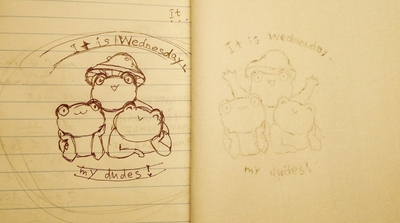 It
It is Wednesday,
my dudes!
It is wednesday,
my dudes!